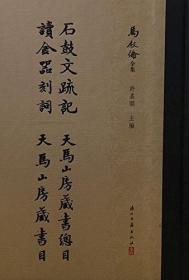 馬叙倫
全集
許嘉璐 主編
浙江古籍出版社
石鼓文疏記 天馬山房藏書總目
讀金器刻詞 天馬山房藏書目